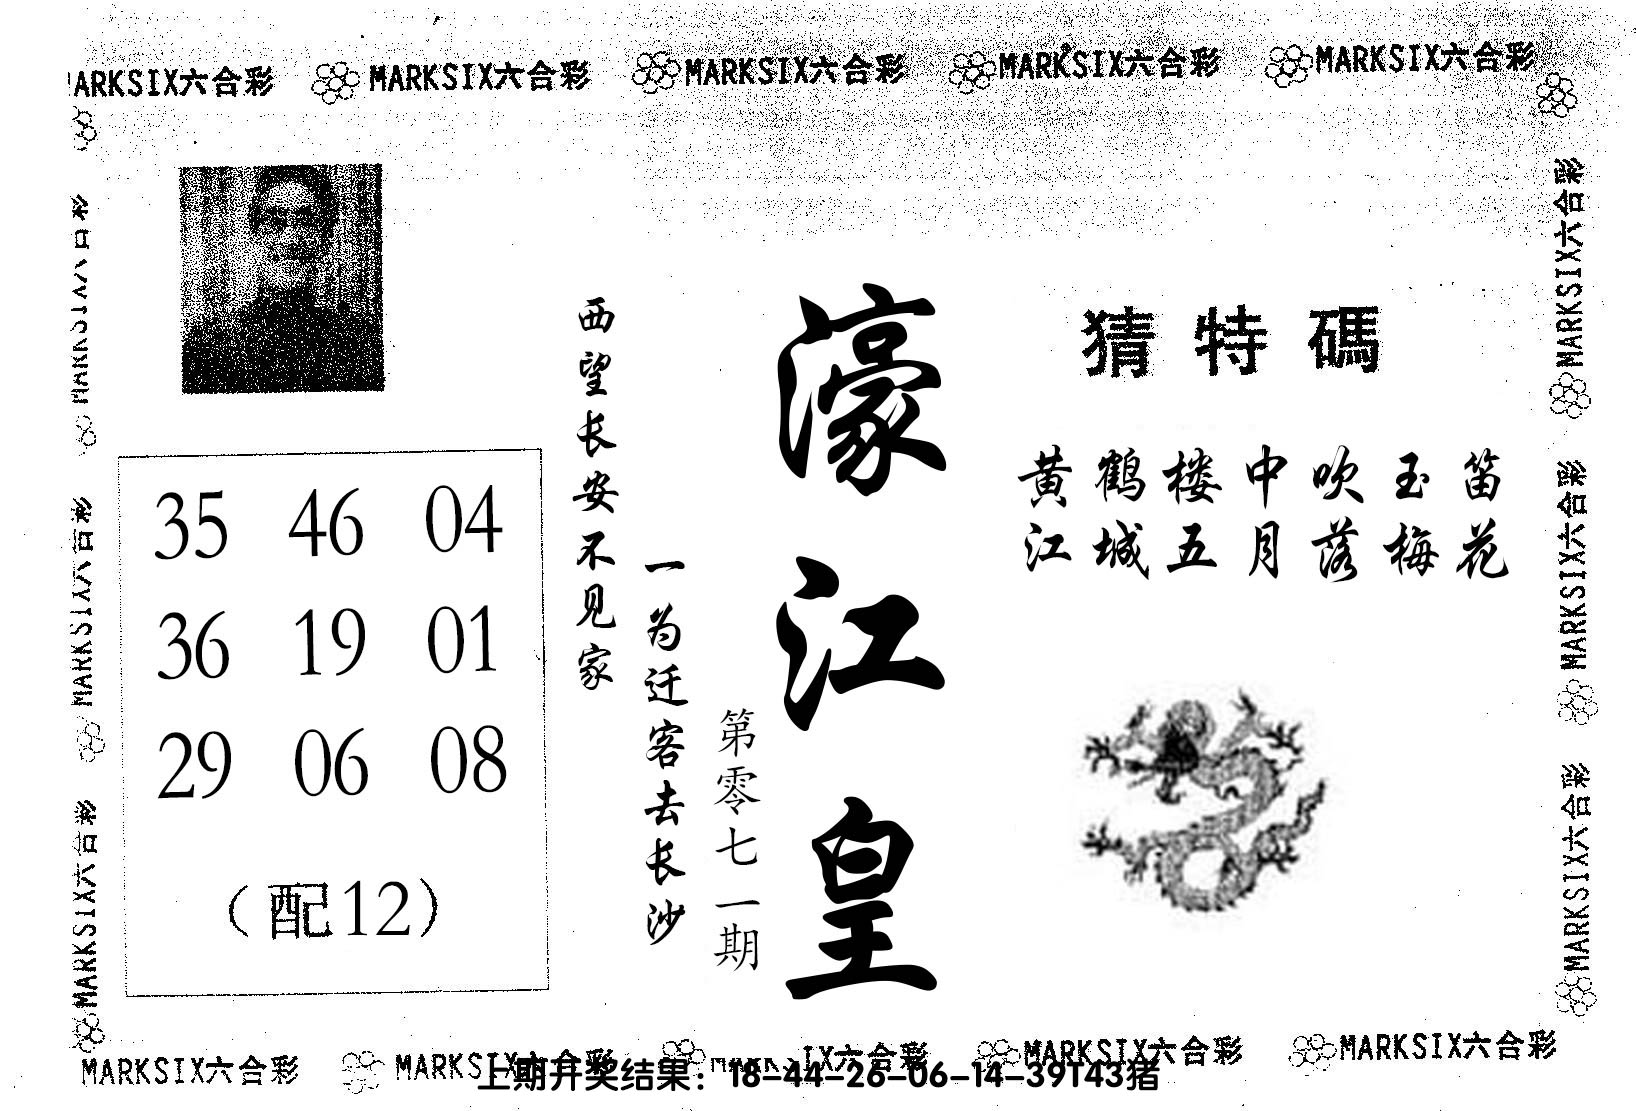 MARKSIX六合彩 MARKSIX六合彩 MARKSIX六合彩 MARKSIX六合彩
MARKSIX六合彩
MARKSIX六合彩
MARKSIX六合彩
MARKSIX六合彩
MARKSIX六合彩
MARKSIX六合彩
猜特碼
黄鹤楼中吹玉笛
江城五月落梅花
濠江皇
第零七一期
一为迁客去长沙
西望长安不见家
35 46 04
36 19 01
29 06 08
（配12）
MARKSIX六合彩 MARKSIX六合彩 IX六合彩 MARKSIX六合彩 MARKSIX六合彩
上期开奖结果：18-44-26-06-14-39T43猪